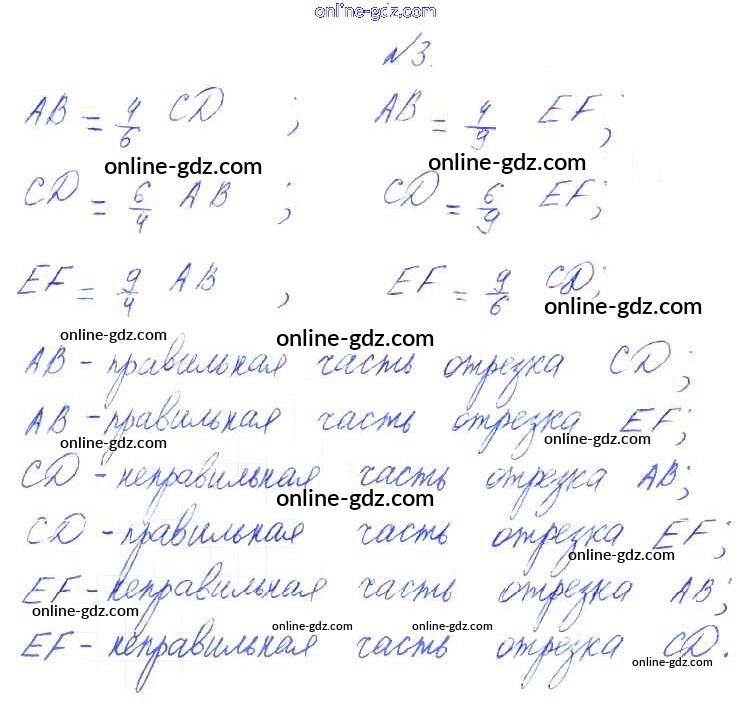 online-gdz.com
№3.
AB = 4/6 CD ; AB = 4/9 EF;
online-gdz.com online-gdz.com
CD = 6/4 AB ; CD = 6/9 EF;
EF = 9/4 AB , EF = 9/6 CD;
online-gdz.com
online-gdz.com online-gdz.com
AB - правильная часть отрезка CD;
AB - правильная часть отрезка EF;
online-gdz.com online-gdz.com
CD - неправильная часть отрезка AB;
online-gdz.com
CD - правильная часть отрезка EF;
online-gdz.com
EF - неправильная часть отрезка AB;
online-gdz.com
online-gdz.com online-gdz.com
EF - неправильная часть отрезка CD.
online-gdz.com